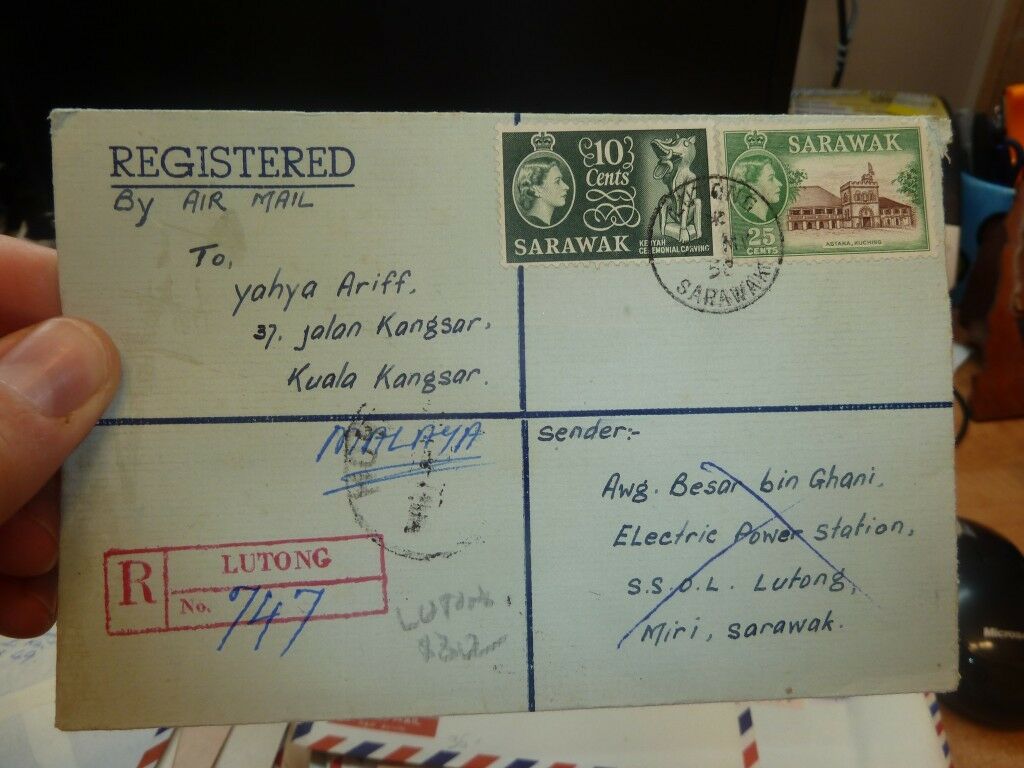 REGISTERED
By AIR MAIL
To,
Yahya Ariff,
37, Jalan Kangsar,
Kuala Kangsar.
MALAYA
10
Cents
SARAWAK
KENYAH
CEREMONIAL CARVING
SARAWAK
25
CENTS
ASTANA, KUCHING
LUTONG
SARAWAK
Sender:-
Awg. Besar bin Ghani,
Electric Power Station,
S.S.O.L. Lutong,
Miri, Sarawak.
R
LUTONG
No. 747
Lutong
Micros